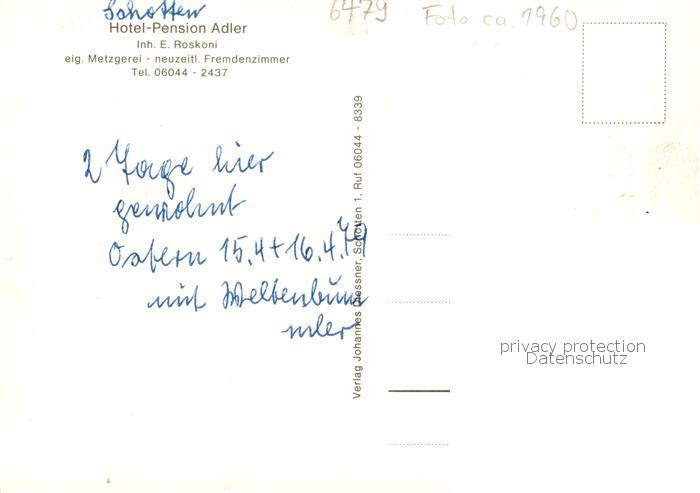 Schotten
6479
Foto ca. 1960
Hotel-Pension Adler
Inh. E. Roskoni
eig. Metzgerei - neuzeitl. Fremdenzimmer
Tel. 06044 - 2437
2 Tage hier
gewohnt
Ostern 15.4 + 16.4.79
mit Weltenbum
mler
Verlag Johannes Diessner, Schotten 1, Ruf 06044 - 8339
privacy protection
Datenschutz